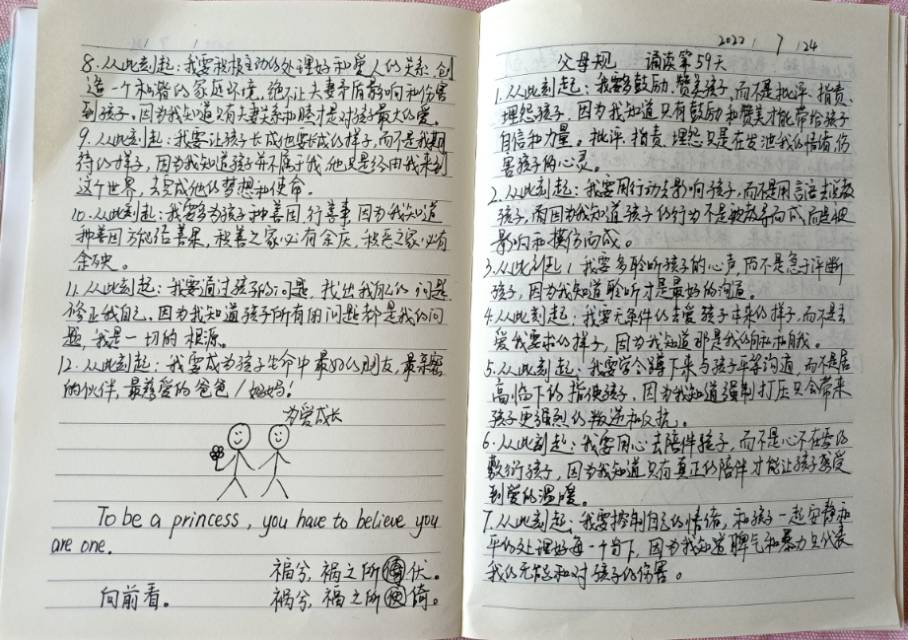 8.从此刻起:我要积极主动的处理好和爱人的关系,创
造一个和谐的家庭环境,绝不让夫妻矛盾影响和伤害
到孩子。因为我知道只有夫妻关系和睦才是对孩子最大的爱。
9.从此刻起:我要让孩子长成他要长成的样子,而不是我期
待的样子,因为我知道孩子并不属于我,他只是经由我来到
这个世界,去完成他的梦想和使命。
10.从此刻起:我要多为孩子种善因,行善事,因为我知道
种善因方能结善果,积善之家必有余庆,积恶之家必有
余殃。
11.从此刻起:我要通过孩子的问题,找出我自己的问题,
修正我自己,因为我知道孩子所有的问题都是我的问
题,我是一切的根源。
12.从此刻起:我要成为孩子生命中最好的朋友,最亲密
的伙伴,最慈爱的爸爸/妈妈!
为爱成长
To be a princess, you have to believe you
are one.
福兮,祸之所倚伏。
向前看。 祸兮,福之所伏倚。
2022 7 24
父母规 诵读第59天
1.从此刻起:我要多鼓励、赞美孩子,而不是批评、指责、
埋怨孩子,因为我知道只有鼓励和赞美才能带给孩子
自信和力量。批评、指责、埋怨只是在发泄我的情绪,伤
害孩子的心灵。
2.从此刻起:我要用行动去影响孩子,而不是用言语去说教
孩子,因为我知道孩子的行为不是被教导而成,而是被
影响和模仿而成。
3.从此刻起:我要多聆听孩子的心声,而不是急于评断
孩子,因为我知道聆听才是最好的沟通。
4.从此刻起:我要无条件的去爱孩子本来的样子,而不是去
爱我要求的样子,因为我知道那是我的自私和自我。
5.从此刻起:我要学会蹲下来与孩子平等沟通,而不是居
高临下的指使孩子,因为我知道强制打压只会带来
孩子更强烈的叛逆和反抗。
6.从此刻起:我要用心去陪伴孩子,而不是心不在焉的
敷衍孩子,因为我知道只有真正的陪伴才能让孩子感受
到爱的温暖。
7.从此刻起:我要控制自己的情绪,和孩子一起安静和
平的处理好每一个当下,因为我知道脾气和暴力只代表
我的无能和对孩子的伤害。